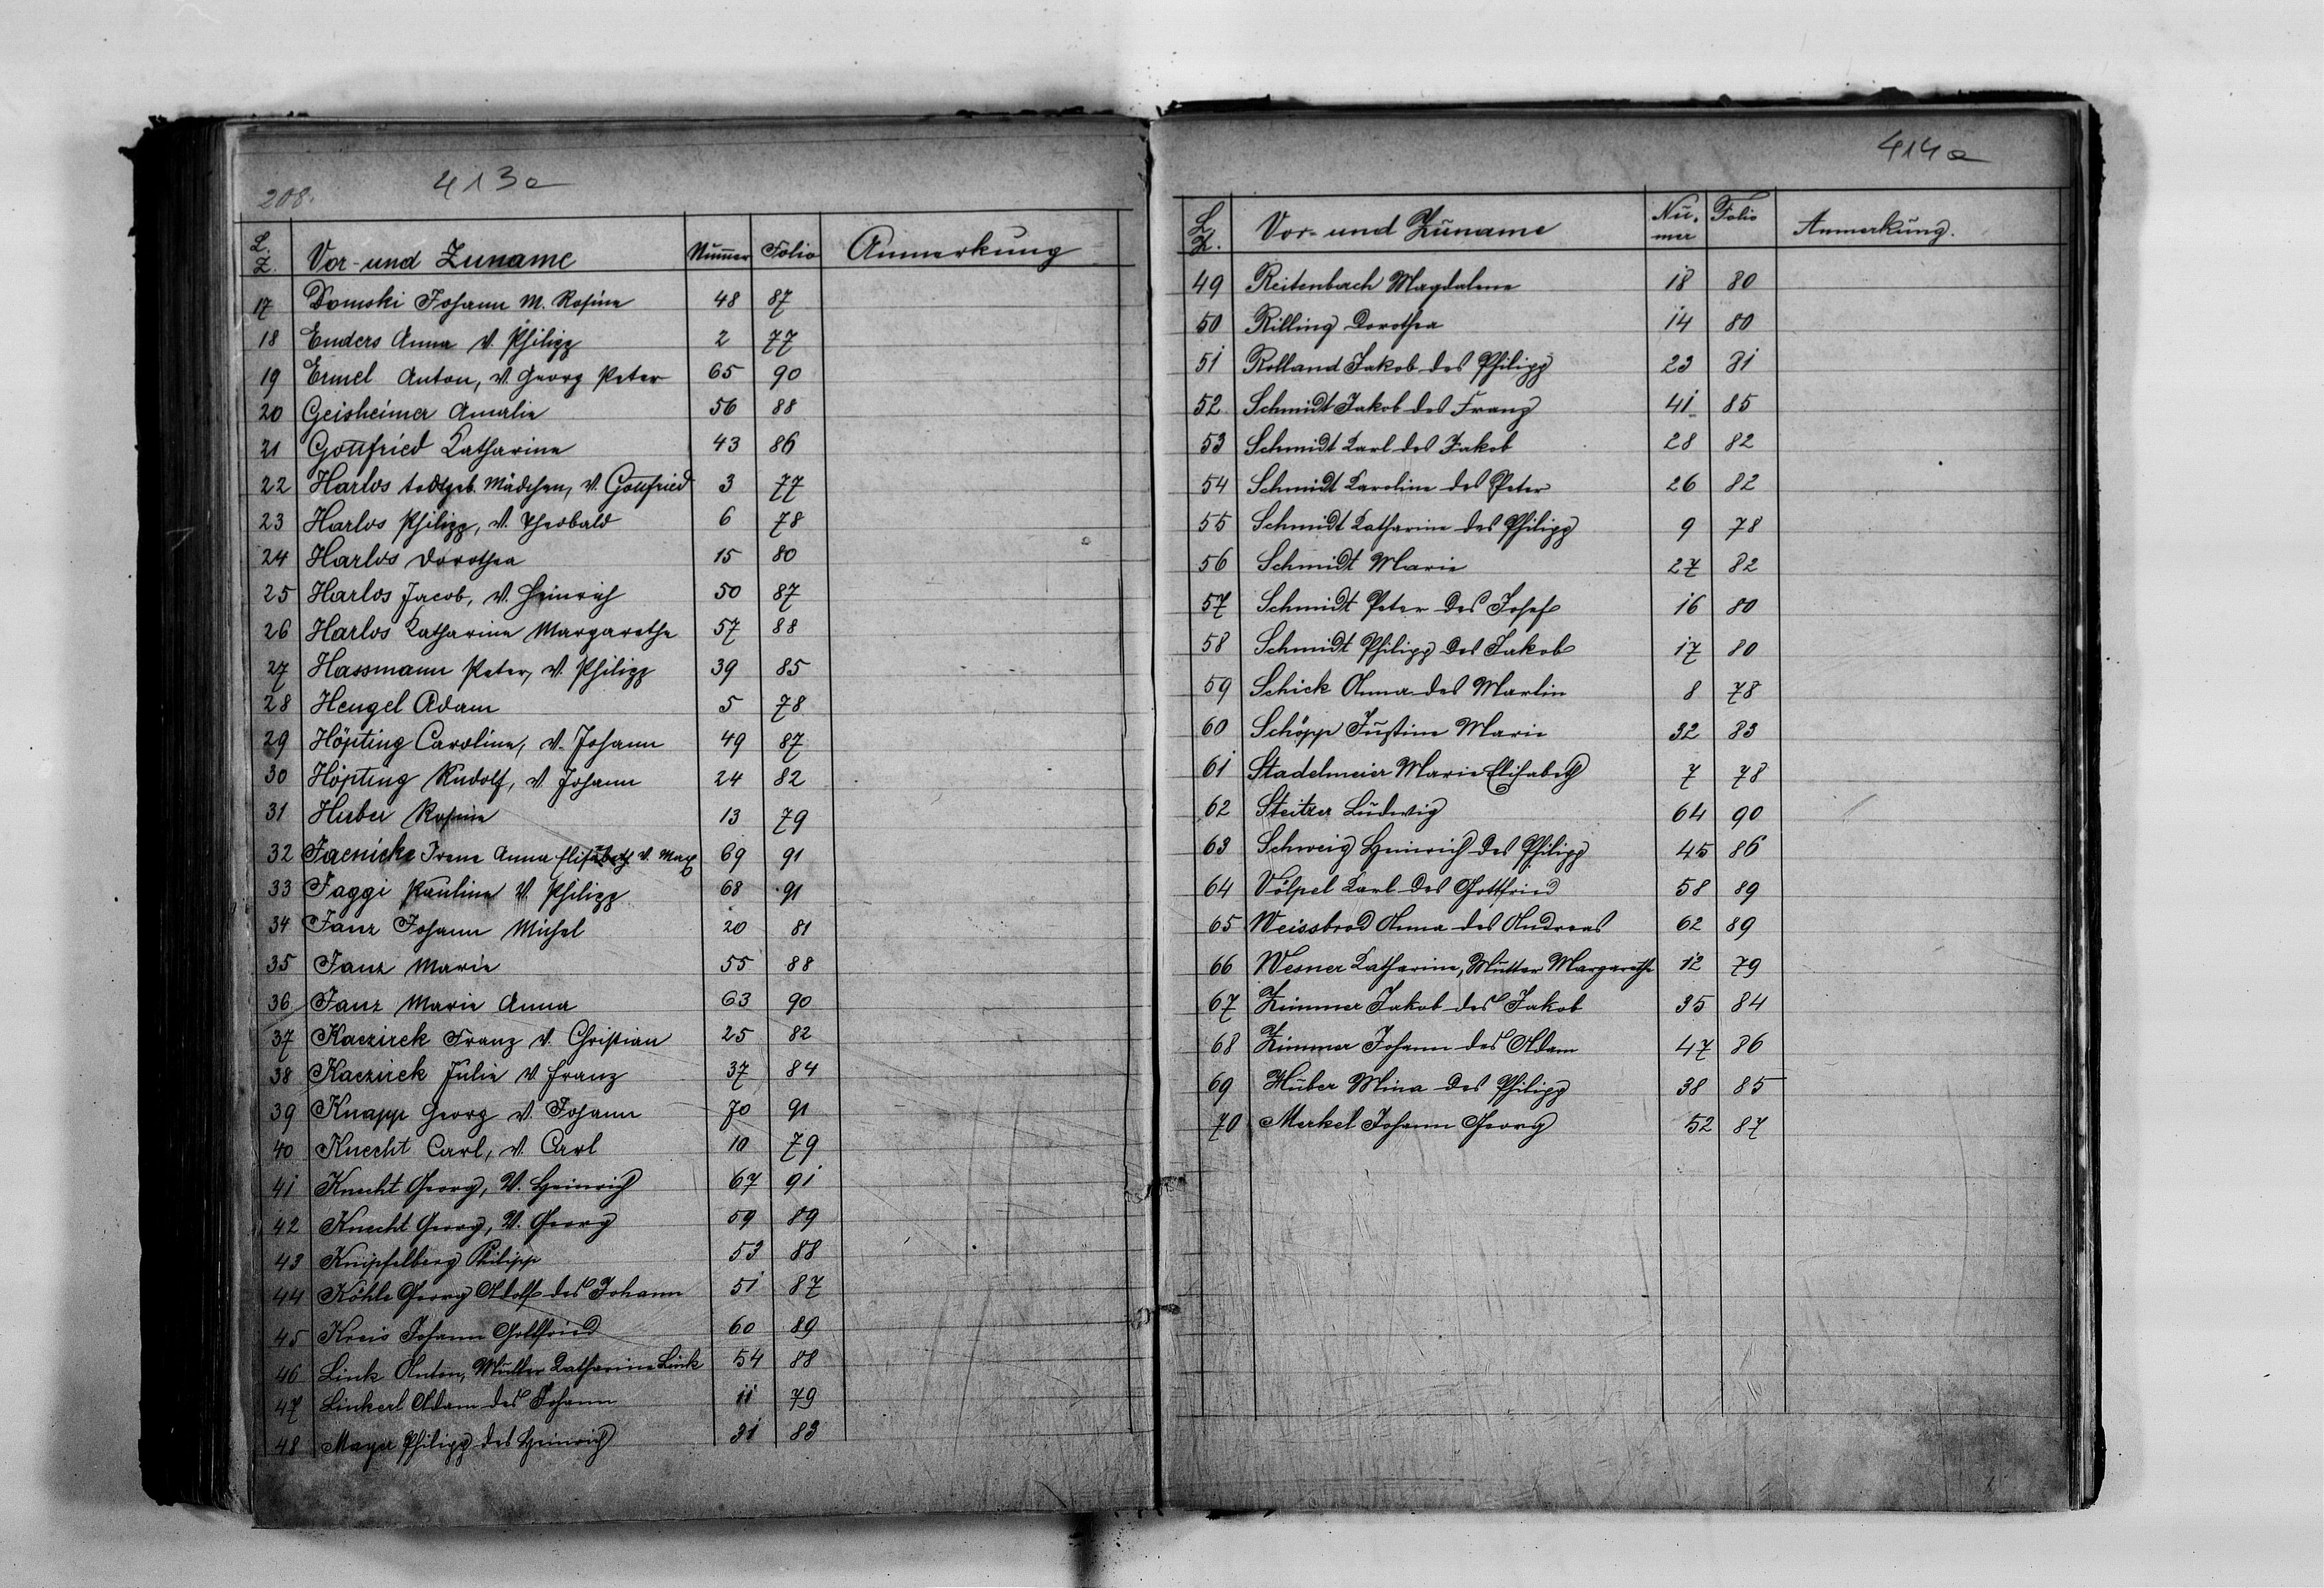 208.
413a
L. Z. Vor- und Zuname Nummer Folio Anmerkung
17 Domski Johann M. Rosine 48 87
18 Enders Anna V. Philipp 2 77
19 Ermel Anton, V. Georg Peter 65 90
20 Geisheimer Amalie 56 88
21 Gottfried Katharina 43 86
22 Harlos todtgeb. Mädchen, V. Gottfried 3 77
23 Harlos Philipp, V. Theobald 6 78
24 Harlos Dorothea 15 80
25 Harlos Jacob, V. Heinrich 50 87
26 Harlos Katharina Margarethe 57 88
27 Hassmann Peter, V. Philipp 39 85
28 Hengel Adam 5 78
29 Höpting Caroline, V. Johann 49 87
30 Höpting Rudolf, V. Johann 24 82
31 Huber Rosine 13 79
32 Jaenicke Irene Anna Elisabeth V. Max 69 91
33 Jaggi Pauline V. Philipp 68 91
34 Janz Johann Michel 20 81
35 Janz Marie 55 88
36 Janz Marie Anna 63 90
37 Kaczirek Franz V. Christian 25 82
38 Kaczirek Julie V. Franz 37 84
39 Knapp Georg V. Johann 70 91
40 Knecht Carl, V. Carl 10 79
41 Knecht Georg, V. Heinrich 67 91
42 Knecht Georg, V. Georg 59 89
43 Knipfelberg Philipp 53 88
44 Köhle Georg Adolf des Johann 51 87
45 Kreis Johann Gottfried 60 89
46 Link Anton, Mutter Katharina Link 54 88
47 Linkerl Adam des Johann 11 79
48 Mayer Philipp des Heinrich 31 83
414a
L. Z. Vor- und Zuname Nu-mer Folio Anmerkung.
49 Reitenbach Magdalena 18 80
50 Rilling Dorothea 14 80
51 Rolland Jakob des Philipp 23 81
52 Schmidt Jakob des Franz 41 85
53 Schmidt Karl des Jakob 28 82
54 Schmidt Karoline des Peter 26 82
55 Schmidt Katharine des Philipp 9 78
56 Schmidt Marie 27 82
57 Schmidt Peter des Josef 16 80
58 Schmidt Philipp des Jakob 17 80
59 Schick Anna des Martin 8 78
60 Schöpp Justine Marie 32 83
61 Stadelmeier Marie Elisabeth 7 78
62 Steitzer Ludwig 64 90
63 Schweig Heinrich des Philipp 45 86
64 Völpel Karl des Gottfried 58 89
65 Weissbrod Anna des Andreas 62 89
66 Wesner Katharine, Mutter Margarethe 12 79
67 Zimmer Jakob des Jakob 35 84
68 Zimmer Johann des Adam 47 86
69 Huber Mina des Philipp 38 85
70 Merkel Johann Georg 52 87